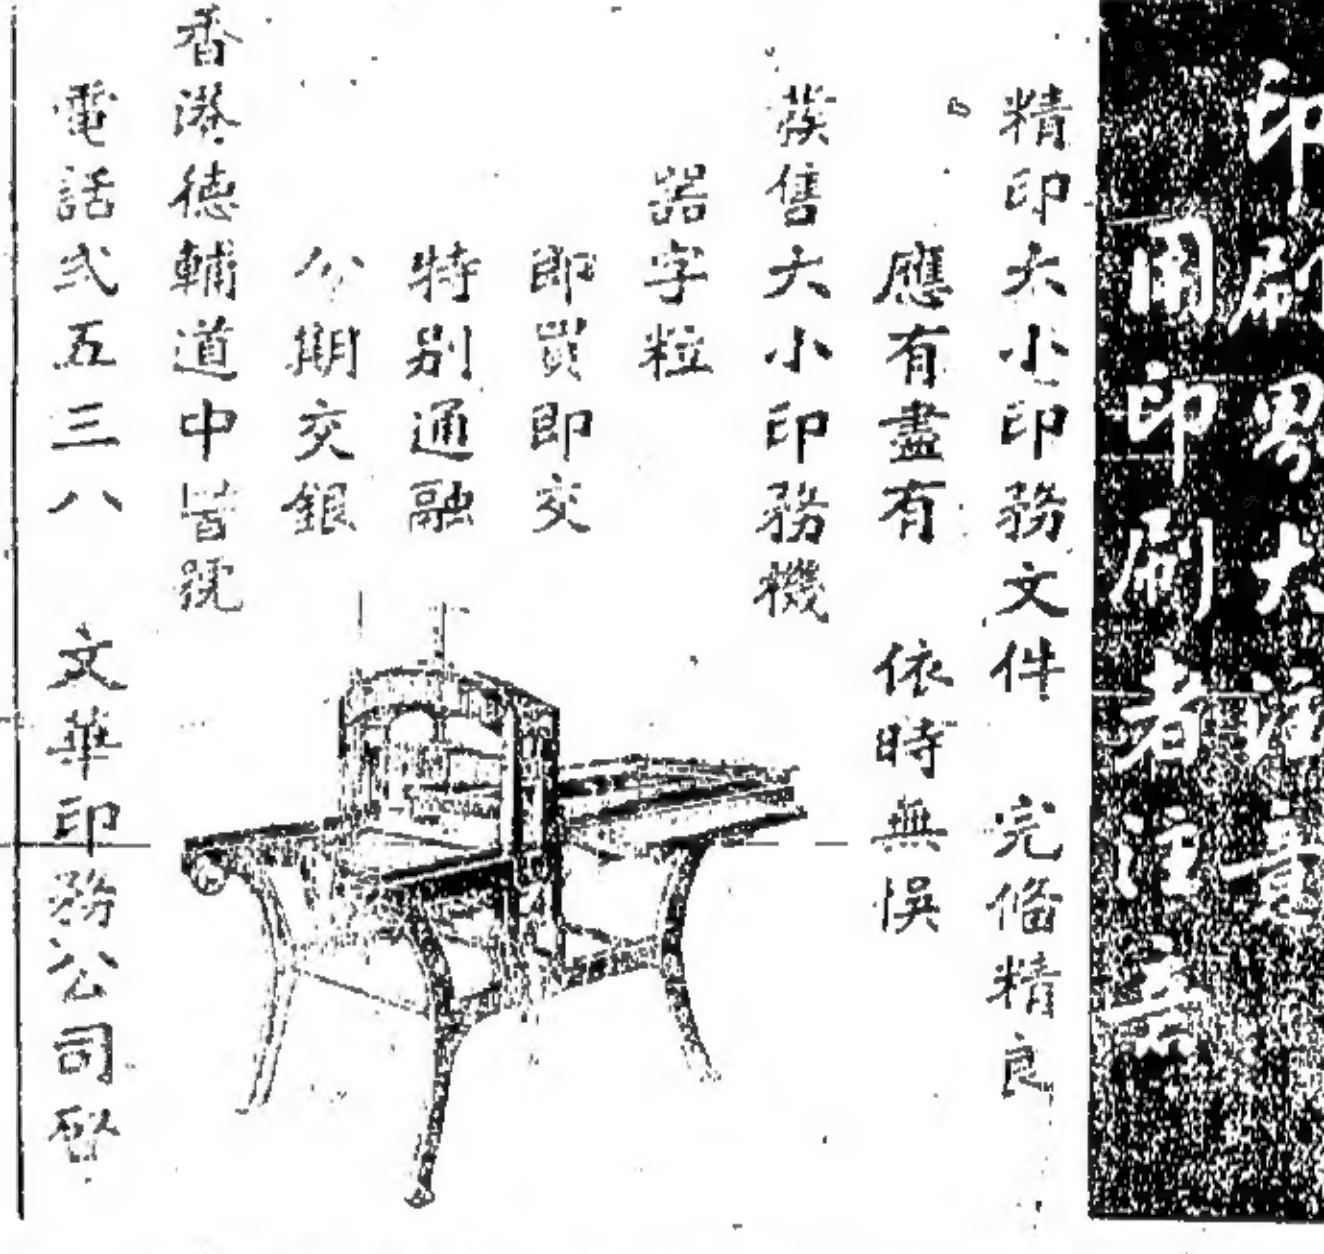 印刷界大注意
用印刷者注意
精印大小印務文件 完俻精良
應有盡有 依時無悞
發售大小印務機
器字粒
即買即交
特別通融
公期交銀
香港德輔道中 號
電話弍五三八 文華印務公司啓